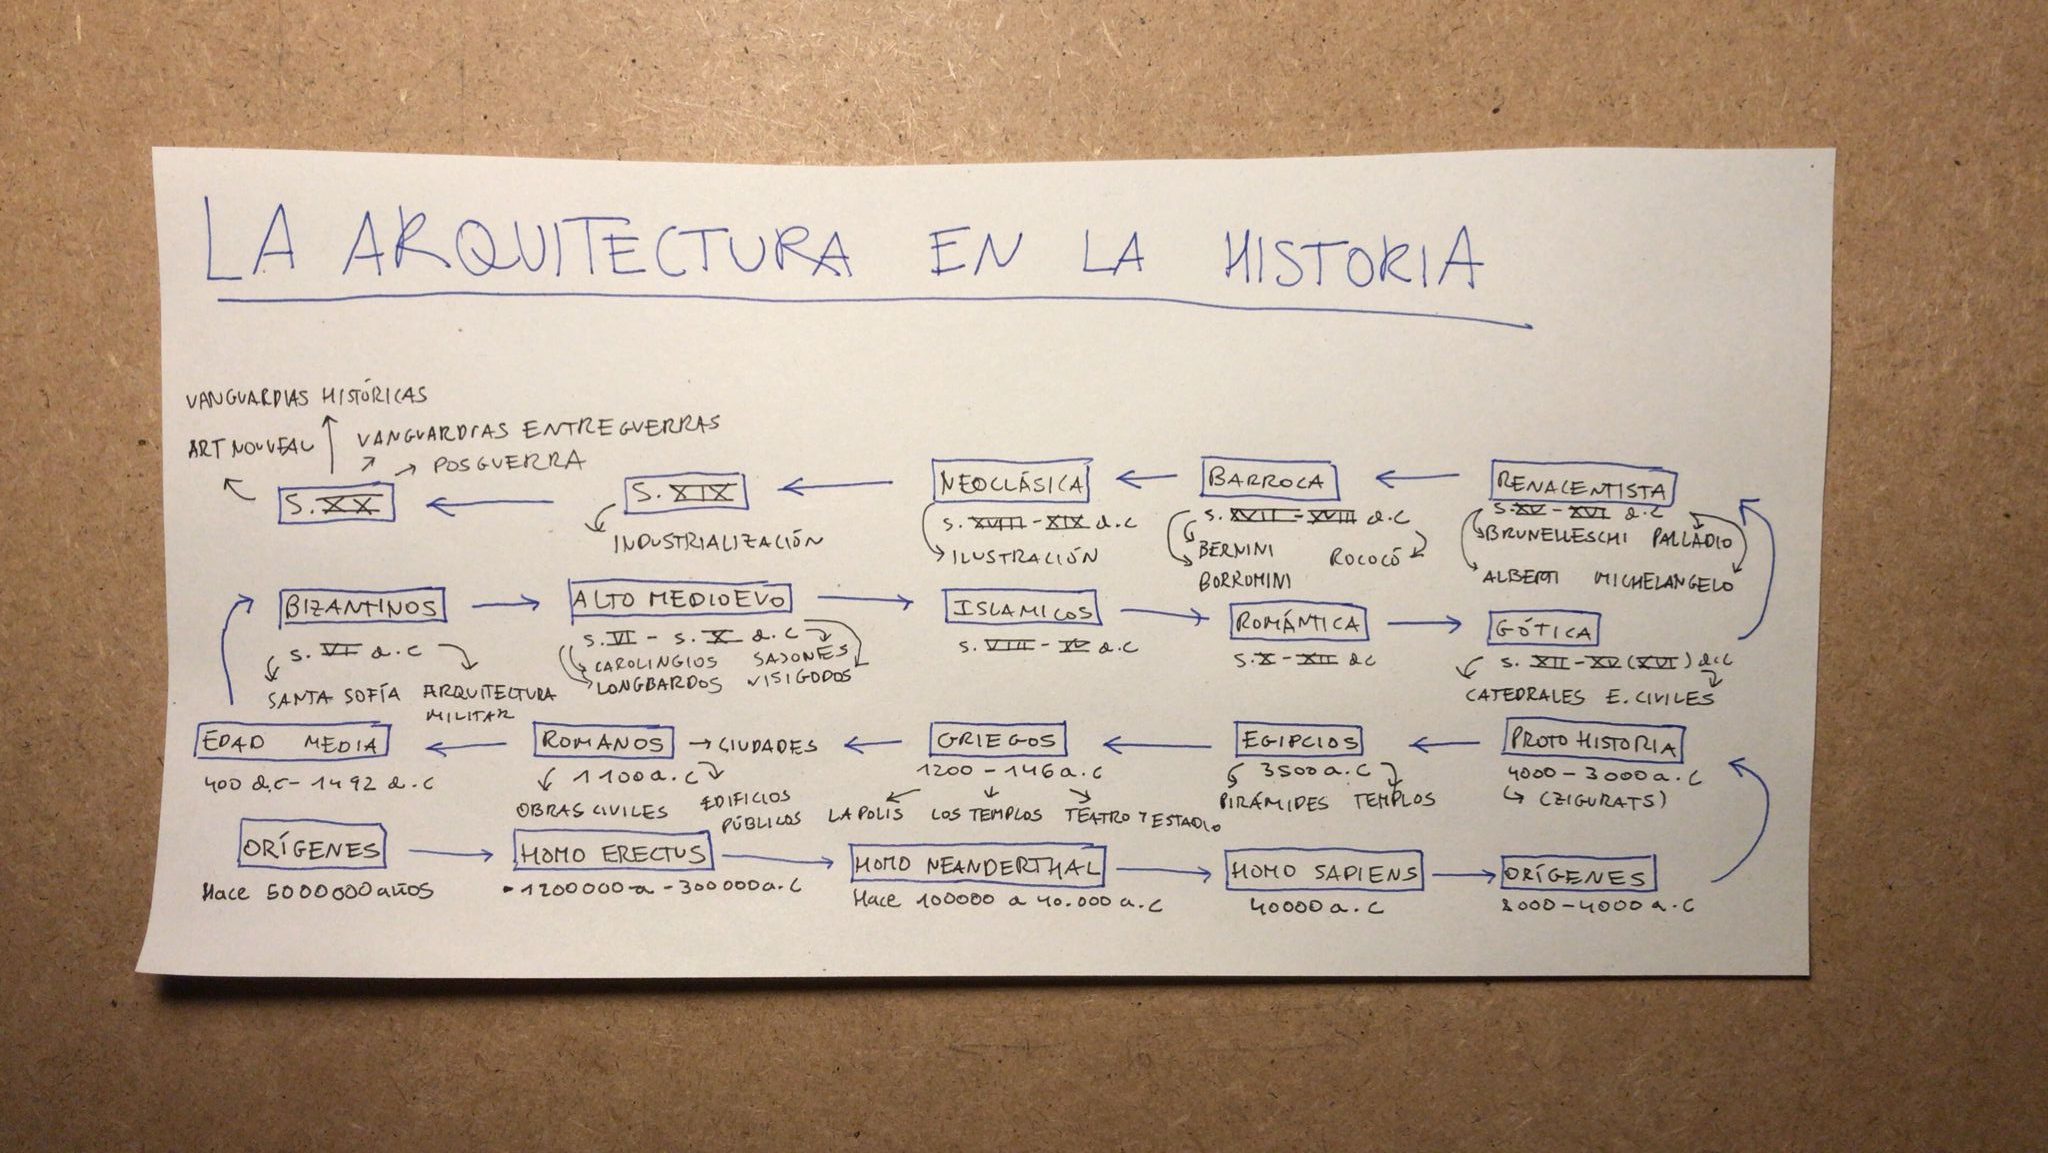 LA ARQUITECTURA EN LA HISTORIA
VANGUARDIAS HISTÓRICAS
ART NOUVEAU
VANGUARDIAS ENTREGUERRAS
POSGUERRA
S. XX
S. XIX
INDUSTRIALIZACIÓN
NEOCLÁSICA
S. XVIII - XIX d.C
ILUSTRACIÓN
BARROCA
S. XVII - XVIII d.C
BERNINI
BORROMINI
ROCOCÓ
RENACENTISTA
S. XV - XVI d.C
BRUNELLESCHI PALLADIO
ALBERTI MICHELANGELO
BIZANTINOS
S. VI d.C
SANTA SOFÍA
ARQUITECTURA
MILITAR
ALTO MEDIOEVO
S. VI - S. X d.C
CAROLINGIOS SAJONES
LONGBARDOS VISIGODOS
ISLAMICOS
S. VIII - XV d.C
ROMÁNTICA
S. X - XII dC
GÓTICA
S. XII - XV (XVI) d.C
CATEDRALES E. CIVILES
EDAD MEDIA
400 d.C - 1492 d.C
ROMANOS → CIUDADES
1100 a.C
OBRAS CIVILES
EDIFICIOS
PÚBLICOS
GRIEGOS
1200 - 146 a.C
LA POLIS LOS TEMPLOS TEATRO Y ESTADIO
EGIPCIOS
3500 a.C
PIRÁMIDES TEMPLOS
PROTOHISTORIA
4000 - 3000 a.C
(ZIGURATS)
ORÍGENES
Hace 5000000 años
HOMO ERECTUS
-1200000 a -300000 a.C
HOMO NEANDERTHAL
Hace 100000 a 40.000 a.C
HOMO SAPIENS
40000 a.C
ORÍGENES
8000 - 4000 a.C